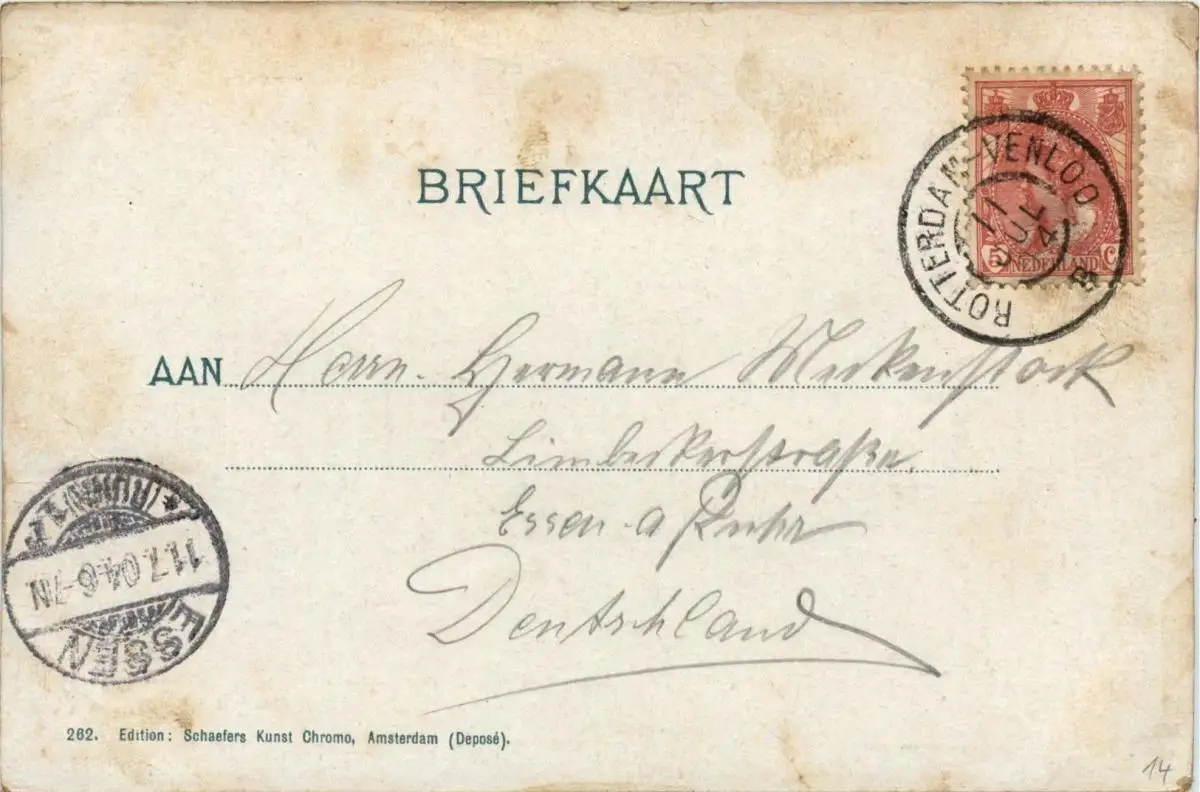 BRIEFKAART
ROTTERDAM-VENLOO
11
JUL
4
B
5 NEDERLAND C
AAN Herrn Hermann Meckenstock
Limbeckerstraße
Essen a Ruhr
Deutschland
ESSEN
11.7.04.6-7N
*(RUHR)1
262. Edition: Schaefers Kunst Chromo, Amsterdam (Deposé).
14